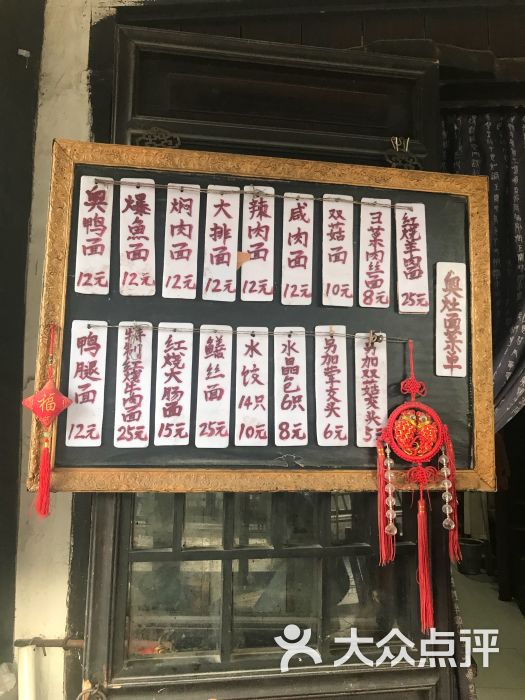 奥灶面菜单
奥鸭面
12元
爆魚面
12元
焖肉面
12元
大排面
12元
辣肉面
12元
咸肉面
12元
双菇面
10元
肉丝面
8元
红烧羊肉面
25元
鸭腿面
12元
牛肉面
25元
红烧大肠面
15元
鳝丝面
25元
水饺
14只
10元
水晶包
6只
8元
另加荤支头
6元
另加双菇支头
5元
福
大众点评